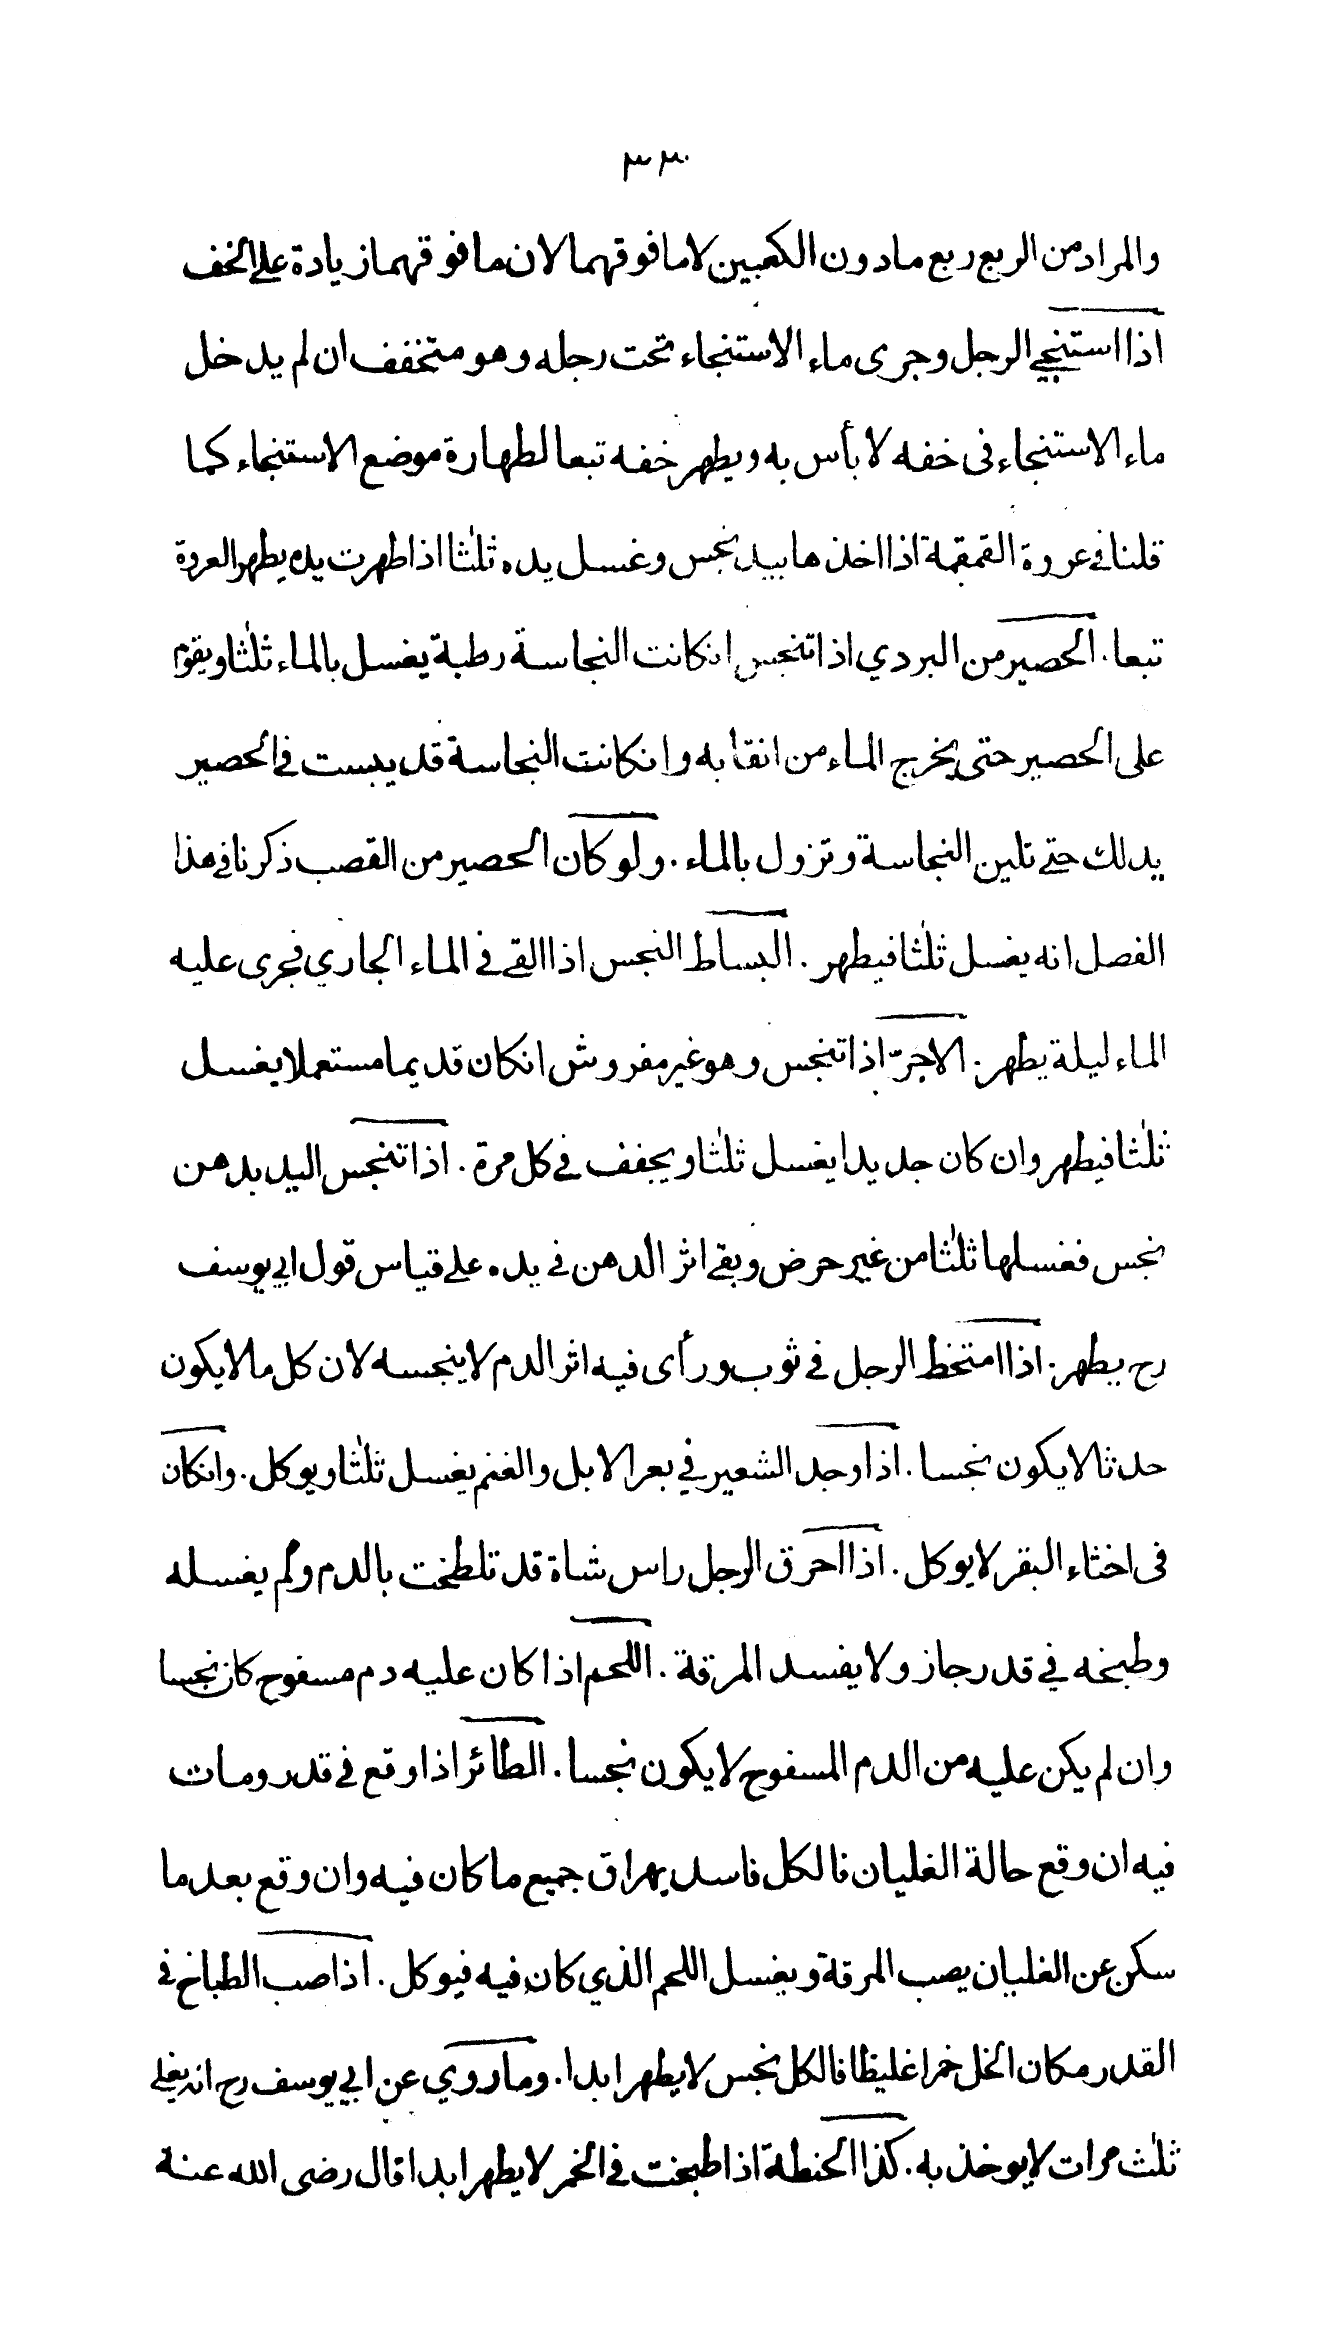 ٣٣
والمراد من الربع ربع ما دون الكعبين لا ما فوقهما لان ما فوقهما زيادة على الخف
اذا استنجى الرجل وجرى ماء الاستنجاء تحت رجله وهو متخفف ان لم يدخل
ماء الاستنجاء فى خفه لا بأس به ويطهر خفه تبعا لطهارة موضع الاستنجاء كما
قلنا في عروة القمقمة اذا اخذها بيد نجس وغسل يده ثلٰثا اذا طهرت يده يطهر العروة
تبعا. الحصير من البردي اذا تنجس انكانت النجاسة رطبة يغسل بالماء ثلٰثا ويقوم
على الحصير حتى يخرج الماء من انقابه وانكانت النجاسة قد يبست في الحصير
يدلك حتى تلين النجاسة وتزول بالماء. ولو كان الحصير من القصب ذكرنا في هذا
الفصل انه يغسل ثلٰثا فيطهر. البساط النجس اذا القي في الماء الجاري فجرى عليه
الماء ليلة يطهر. الاجرّ اذا تنجس وهو غير مفروش انكان قديما مستعملا يغسل
ثلٰثا فيطهر وان كان جديدا يغسل ثلٰثا ويجفف في كل مرة. اذا تنجس اليد بدهن
نجس فغسلها ثلٰثا من غير حرض وبقي اثر الدهن في يده على قياس قول ابي يوسف
رح يطهر. اذا امتخط الرجل في ثوب ورأى فيه اثر الدم لا ينجسه لان كل ما لا يكون
حدثا لا يكون نجسا. اذا وجد الشعير في بعر الابل والغنم يغسل ثلٰثا ويوكل. وانكان
فى اخثاء البقر لا يوكل. اذا احرق الرجل راس شاة قد تلطخت بالدم ولم يغسله
وطبخه في قدر جاز ولا يفسد المرقة. اللحم اذا كان عليه دم مسفوح كان نجسا
وان لم يكن عليه من الدم المسفوح لا يكون نجسا. الطائر اذا وقع في قدر ومات
فيه ان وقع حالة الغليان فالكل فاسد يهراق جميع ما كان فيه وان وقع بعد ما
سكن عن الغليان يصب المرقة ويغسل اللحم الذي كان فيه فيوكل. اذا صب الطباخ في
القدر مكان الخل خمرا غليظا فالكل نجس لا يطهر ابدا. وما روي عن ابي يوسف رح انه يغلي
ثلٰث مرات لا يوخذ به. كذا الحنطة اذا طبخت في الخمر لا يطهر ابدا قال رضى الله عنه